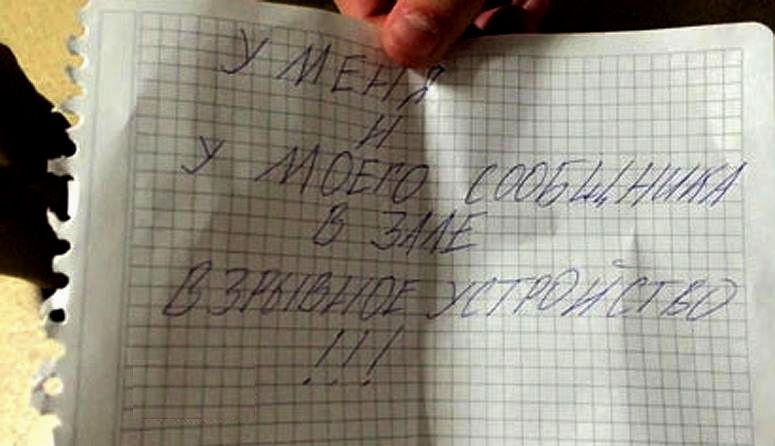 У МЕНЯ
И
У МОЕГО СООБЩНИКА
В ЗАЛЕ
ВЗРЫВНОЕ УСТРОЙСТВО
!!!